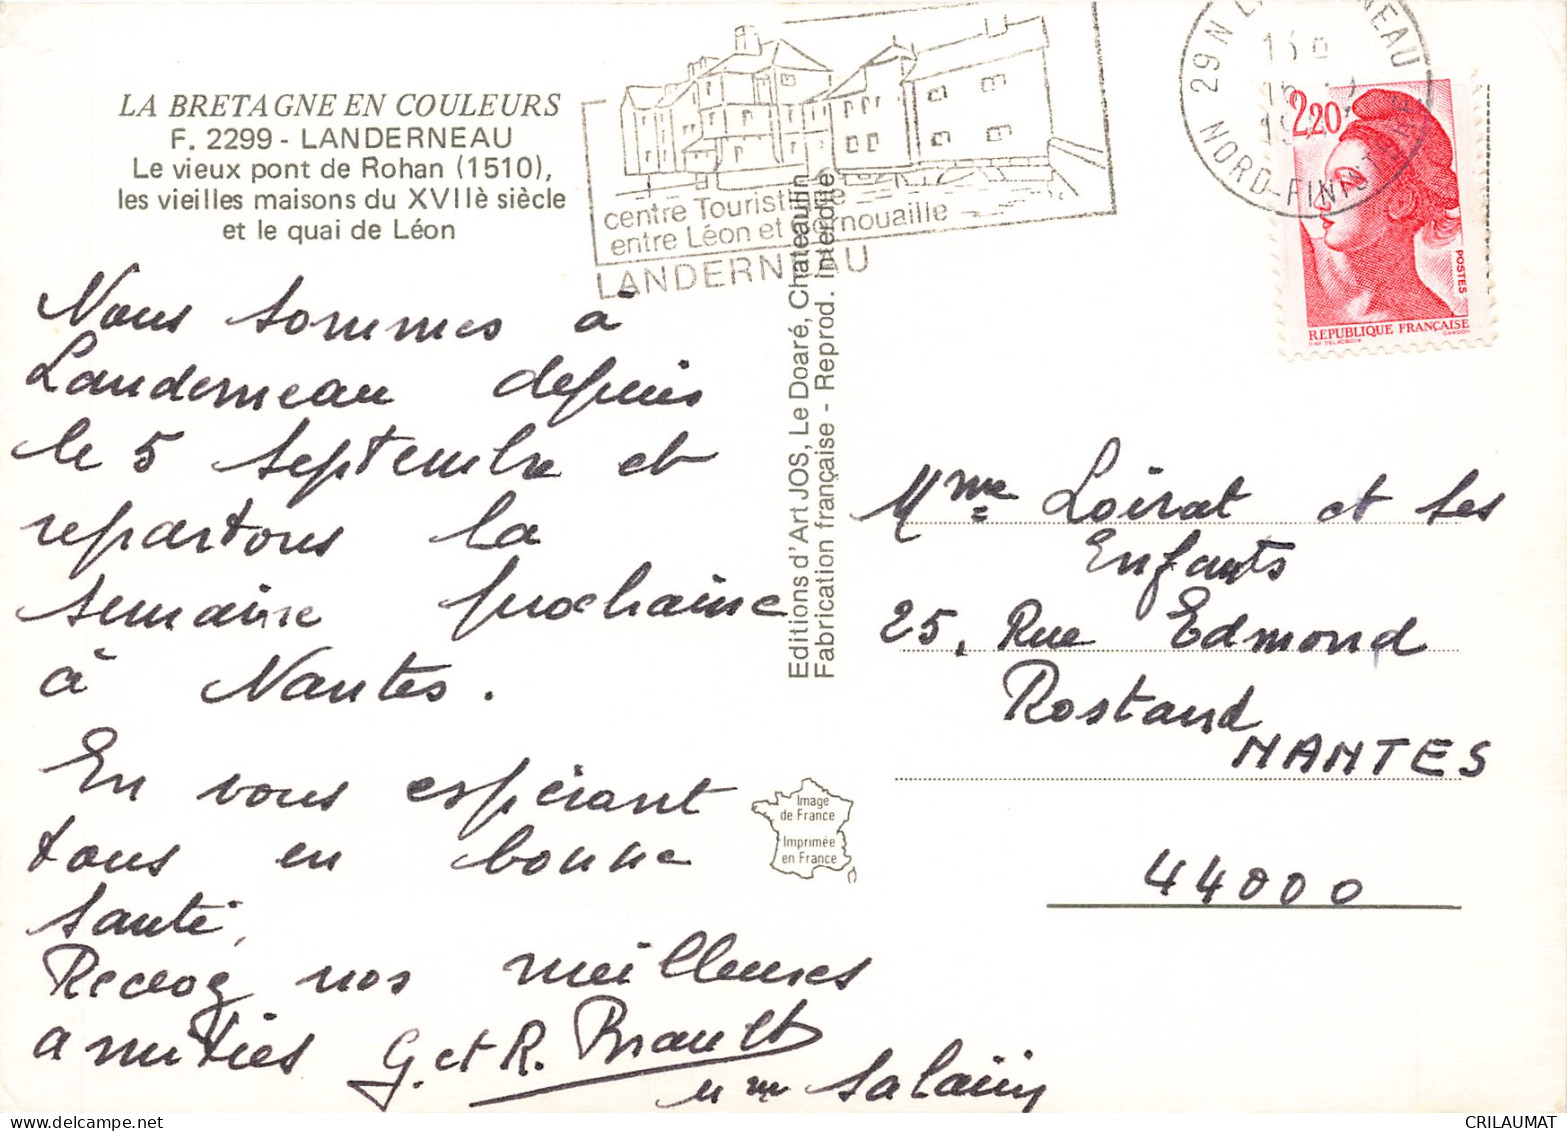 LA BRETAGNE EN COULEURS
F. 2299 - LANDERNEAU
Le vieux pont de Rohan (1510),
les vieilles maisons du XVIIè siècle
et le quai de Léon
centre Touristi
entre Léon et nouaille
LANDERNEAU
29N L NEAU
NORD-FINIST
2,20
POSTES
REPUBLIQUE FRANÇAISE
D'AP. DELACROIX GANDON
Nous sommes à
Landerneau depuis
le 5 septembre et
repartons la
semaine prochaine
à Nantes.
En vous espérant
tous en bonne
santé,
Recevez nos meilleures
amitiés G. et R. Brault
Mme Salaün
Editions d'Art JOS, Le Doaré, Chateaulin
Fabrication française - Reprod. interdite
Image
de France
Imprimée
en France
Mme Loirat et ses
Enfants
25, Rue Edmond
Rostand
NANTES
44000
CRILAUMAT